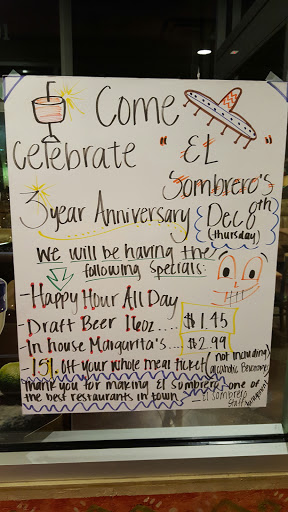 Come
Celebrate "EL
Sombrero's
3 year Anniversary
Dec 8th
(thursday)
We will be having the
following Specials:
-Happy Hour All Day
-Draft Beer 16oz.... $1.45
-In house Margarita's... $2.99
-15% off your whole meal ticket (not including
alcoholic Beverages)
Thank you for making El Sombrero one of
the best restaurants in town.
-El Sombrero
Staff